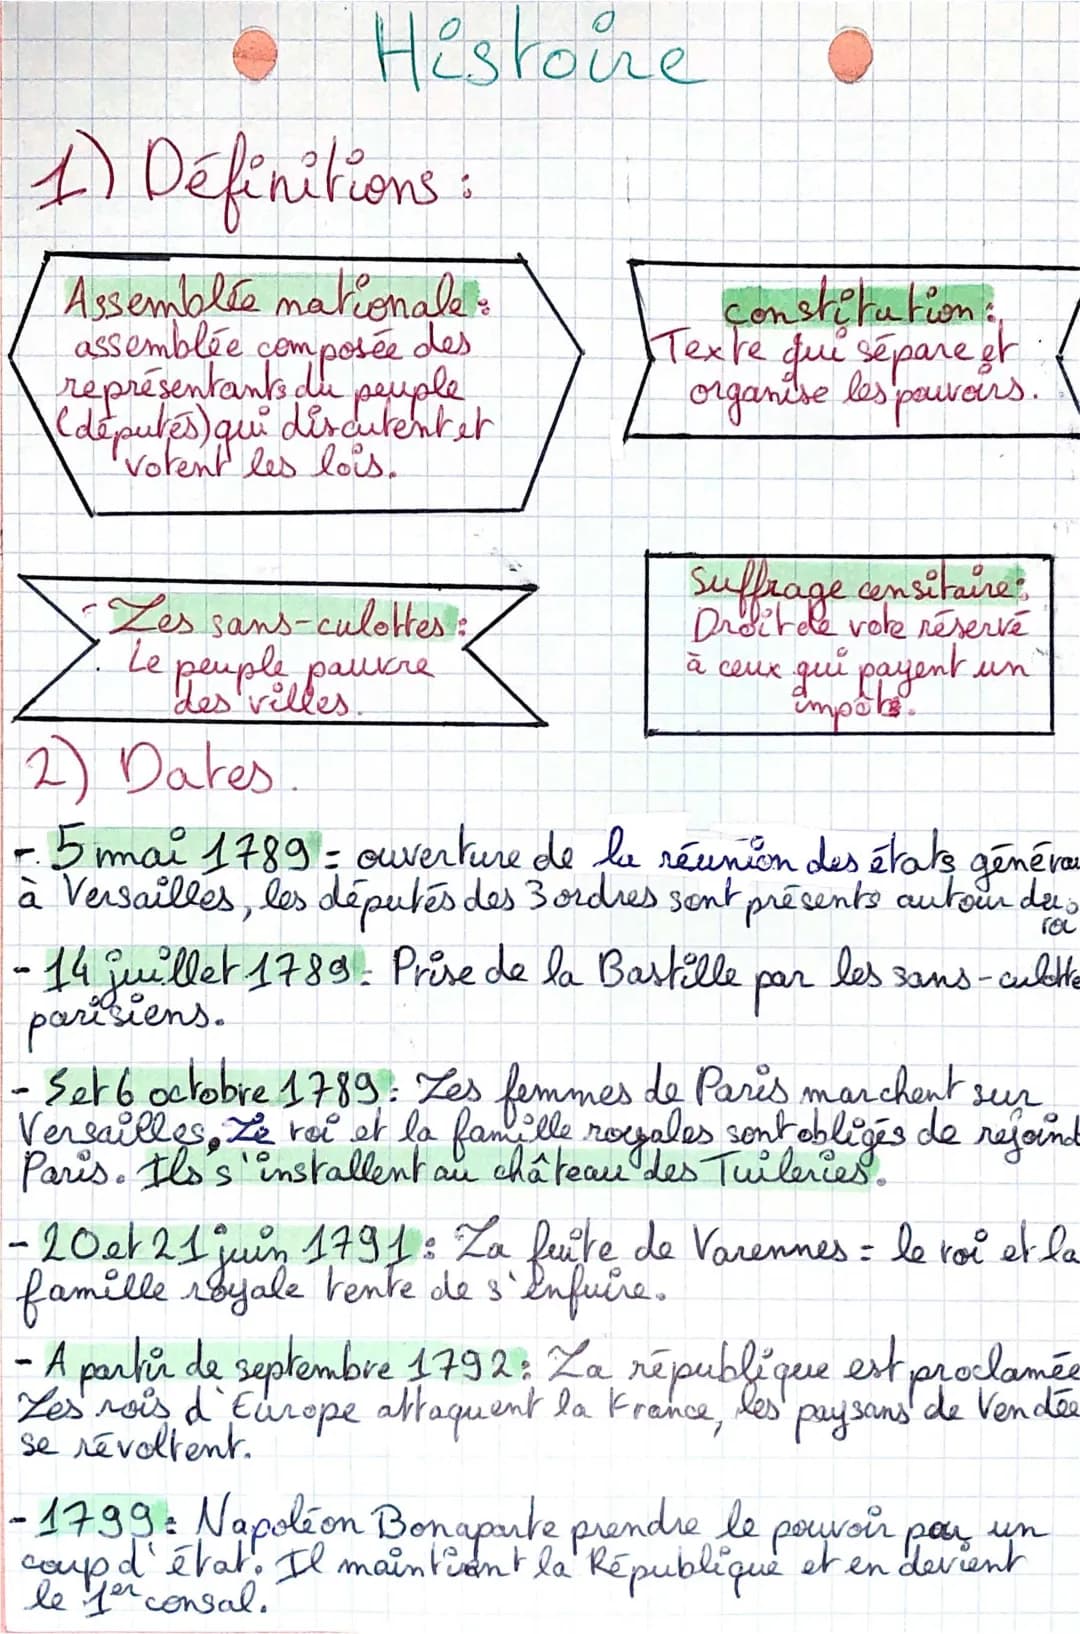 Histoire
1) Définitions :
Assemblée nationale :
assemblée composée des
représentants du peuple
(députés) qui discutent et
votent les lois.
constitution :
Texte qui sépare et
organise les pouvoirs.
Les sans-culottes :
Le peuple pauvre
des villes.
Suffrage censitaire :
Droit de vote réservé
à ceux qui payent un
impôts.
2) Dates.
- 5 mai 1789 = ouverture de la réunion des états générau
à Versailles, les députés des 3 ordres sont présents autour du
roi
- 14 juillet 1789 : Prise de la Bastille par les sans-culotte
parisiens.
- 5 et 6 octobre 1789 : Les femmes de Paris marchent sur
Versailles. Le roi et la famille royales sont obligés de rejoind
Paris. Ils s'installent au château des Tuileries.
- 20 et 21 juin 1791 : La fuite de Varennes = le roi et la
famille royale tente de s'enfuire.
- A partir de septembre 1792 : La république est proclamée
Les rois d'Europe attaquent la France, les paysans de Vendée
se révoltent.
- 1799 : Napoléon Bonaparte prendre le pouvoir par un
coup d'état. Il maintient la République et en devient
le 1er consal.